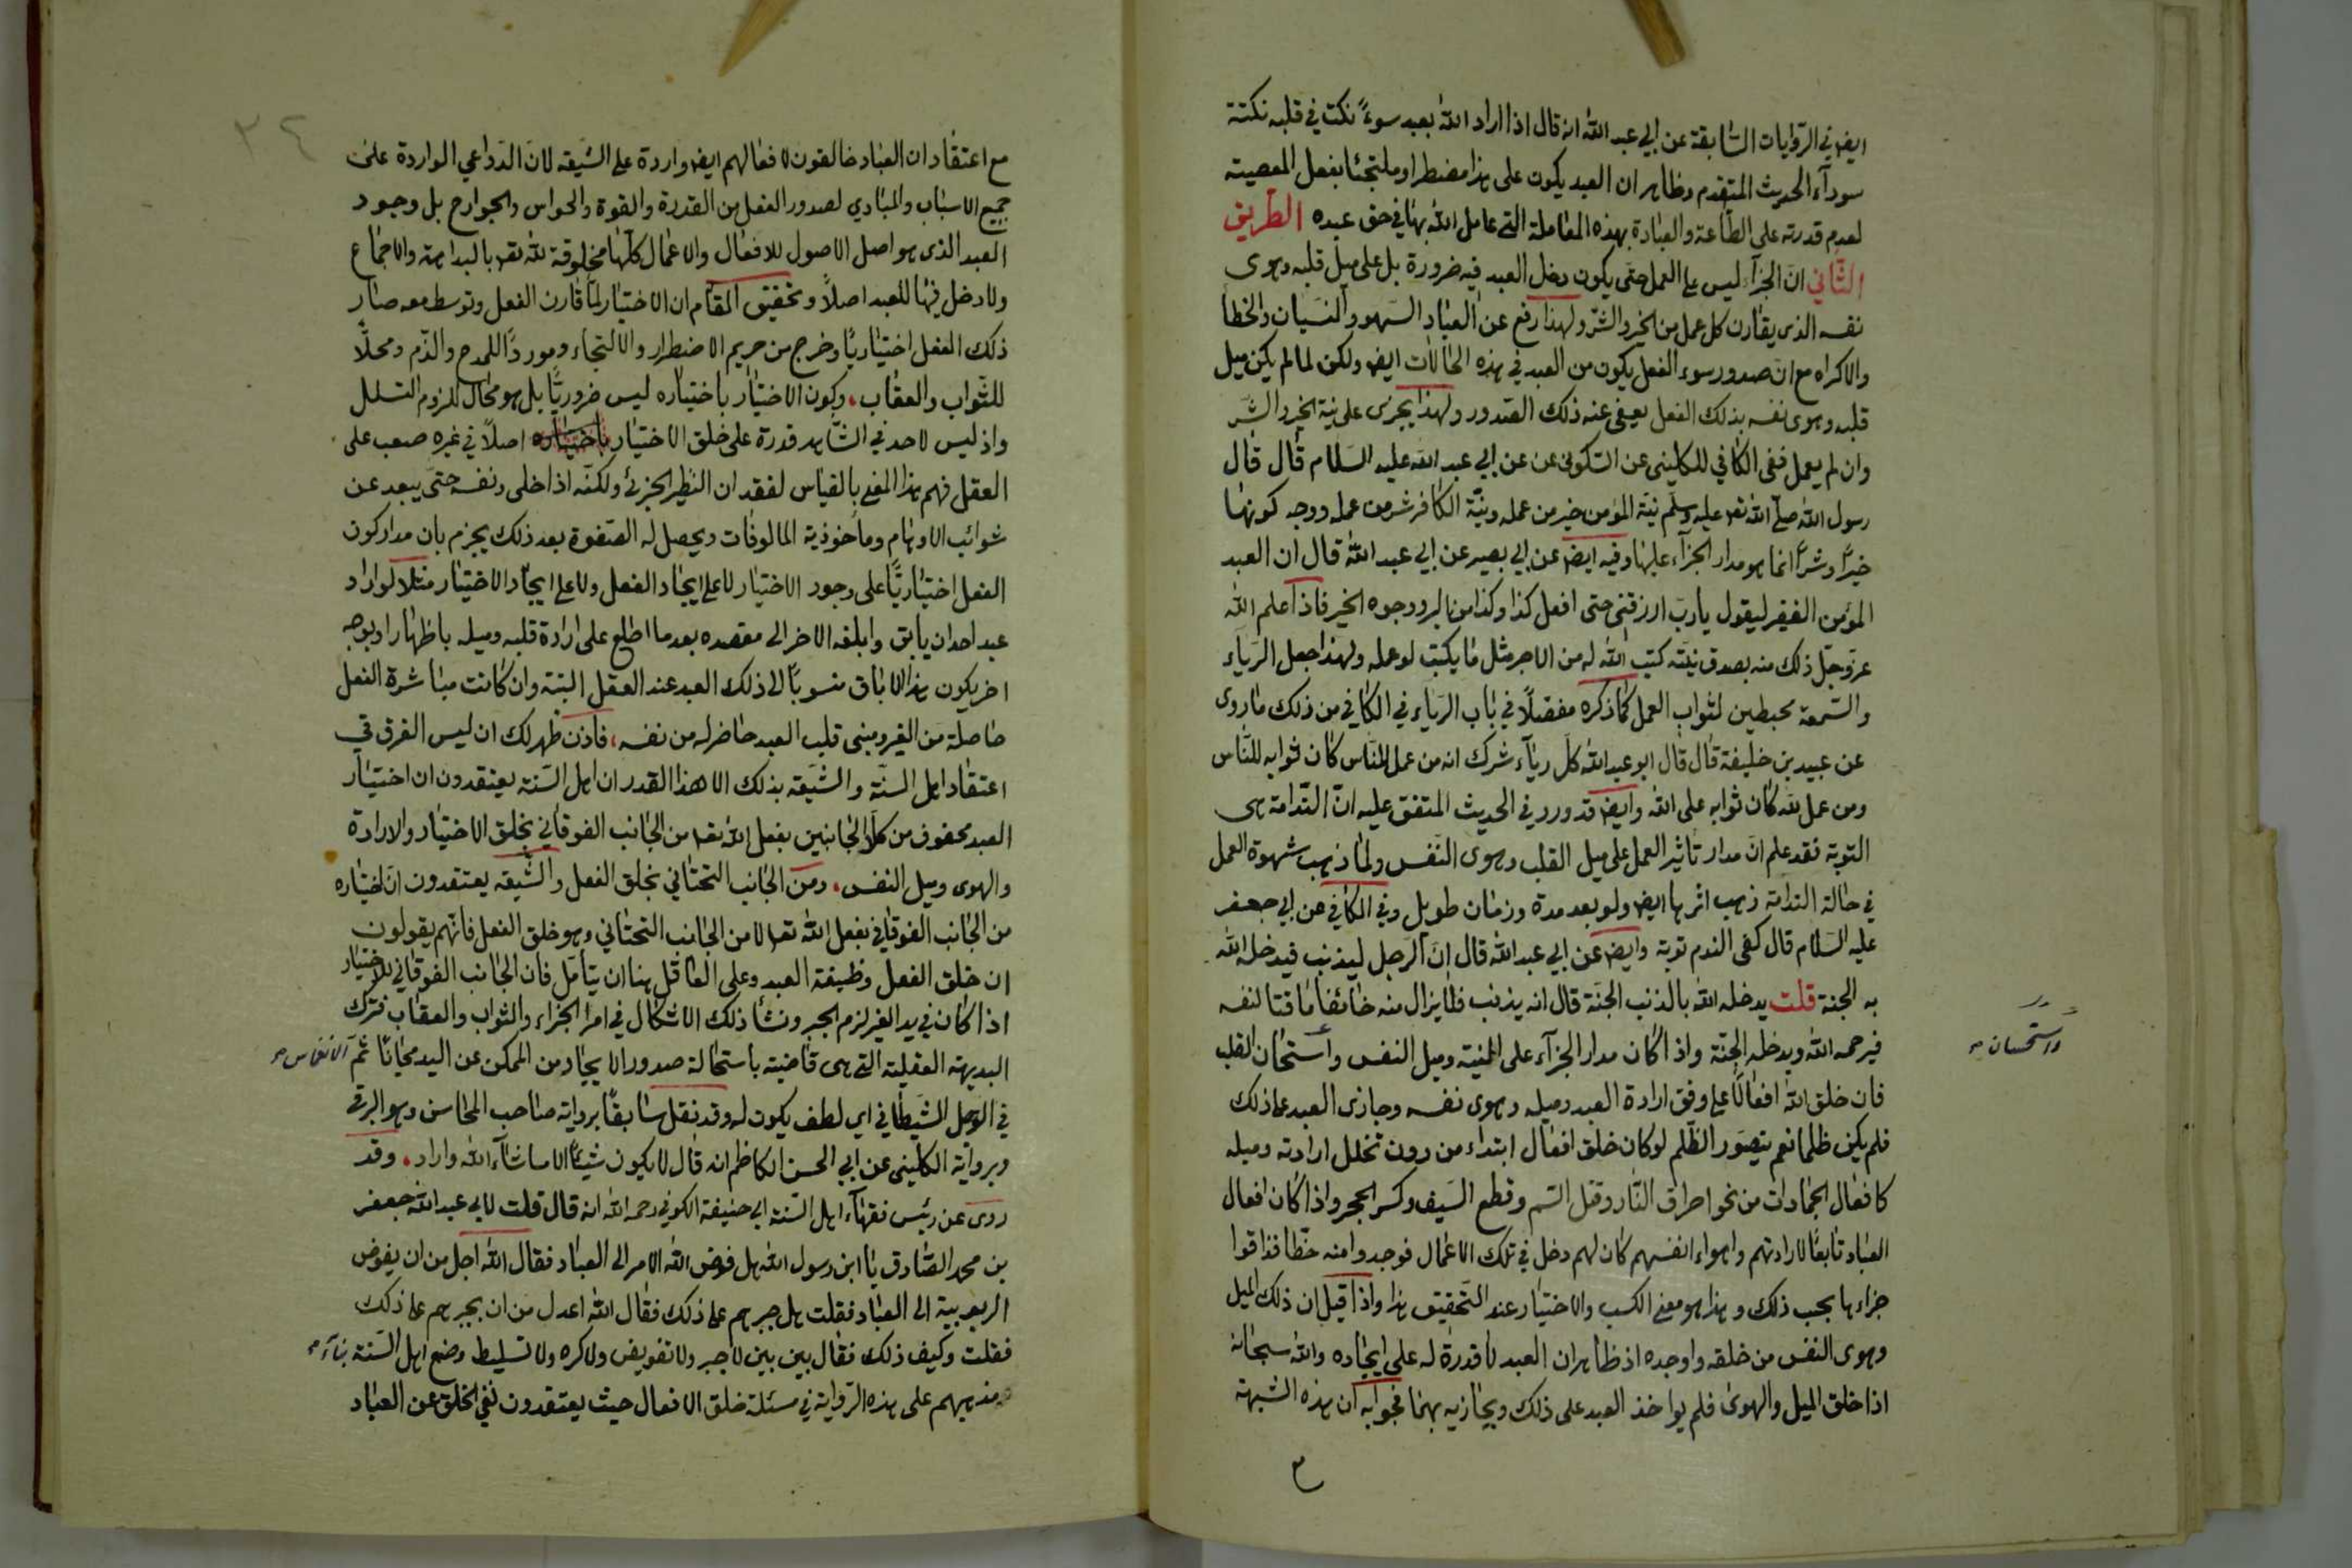 ايض في الروايات السابقة عن ابي عبد الله انه قال اذا اراد الله بعبد سوءً نكت في قلبه نكتة
سودآء الحديث المتقدم وظاهر ان العبد يكون على هذا مضطرا وملتجئا بفعل المعصيته
لعدم قدرته على الطّاعة والعبادة بهذه المعاملة التي عامل الله بها في حق عبده الطّريق
الثّاني انّ الجزآء ليس على العمل حتى يكون دخل العبد فيه ضرورة بل على ميل قلبه وهوى
نفسه الذى يقارن كل عمل من الخير والشرّ ولهذا رفع عن العباد السهو والنسيان والخطأ
والاكراه مع انّ صدور سوء الفعل يكون من العبد في هذه الحالات ايض ولكن لما لم يكن ميل
قلبه وهوى نفسه بذلك الفعل يعفى عنه ذلك الصّدور ولهذا يجزى على نية الخير والشّر
وان لم يعمل ففى الكافي للكلينى عن السّكونى عن ابي عبد الله عليه السّلام قال قال
رسول الله صلّى الله تعه عليه وسلّم نيّة المؤمن خير من عمله ونيّة الكافر شر من عمله ووجه كونها
خيرًا وشرًّا انما هو مدار الجزآء عليها وفيه ايضه عن ابي بصير عن ابي عبد الله قال ان العبد
المؤمن الفقير ليقول يا ربّ ارزقنى حتى افعل كذا وكذا من البر ووجوه الخير فاذا علم الله
عزّوجلّ ذلك منه بصدق نيّته كتب الله له من الاجر مثل ما يكتب لو عمله ولهذا جعل الرّياء
والسّمعة محبطين لثواب العمل كما ذكره مفصّلاً في باب الرّياء في الكافي من ذلك ما روى
عن عبيد بن خليفة قال قال ابو عبد الله كلّ ريآء شرك انه من عمل للنّاس كان ثوابه للنّاس
ومن عمل لله كان ثوابه على الله وايضه قد ورد في الحديث المتفق عليه انّ النّدامة هى
التوبة فقد علم انّ مدار تأثير العمل على ميل القلب وهوى النّفس ولما ذهب شهوة العمل
في حالة الندامة ذهب اثرها ايض ولو بعد مدة وزمان طويل وفي الكافي عن ابي جعفر
عليه السّلام قال كفى الندم توبة وايضه عن ابي عبد الله قال انّ الرّجل ليذنب فيدخله الله
به الجنة قلت يدخله الله بالذنب الجنّة قال انه يذنب فلا يزال منه خائفا ماقتا لنفسه
فيرحمه الله ويدخله الجنّة واذا كان مدار الجزآء على النية وميل النفس واستحسان القلب
واستحسان
فان خلق الله افعالًا على وفق ارادة العبد وميله وهوى نفسه وجازى العبد على ذلك
فلم يكن ظلما نعم يتصوّر الظّلم لو كان خلق افعال ابتداء من دون تخلل ارادته وميله
كافعال الجمادات من نحو احراق النّار وقتل السّم وقطع السّيف وكسر الحجر واذا كان افعال
العباد تابعًا لارادتهم واهواء انفسهم كان لهم دخل في تلك الاعمال فوجدوا منه حظّا فذاقوا
جزاءها بحسب ذلك وهذا هو معنى الكسب والاختيار عند التّحقيق هذا واذا قيل ان ذلك الميل
وهوى النفس من خلقه واوجده اذ ظاهر ان العبد لا قدرة له على ايجاده والله سبحانه
اذا خلق الميل والهوى فلم يواخذ العبد على ذلك ويجازيه بهما فجوابه ان هذه الشبهة
٣٤
مع اعتقاد ان العباد خالقون لافعالهم ايضه واردة على الشّيعه لانّ الدّواعي الواردة على
جميع الاسباب والمبادي لصدور الفعل من القدرة والقوة والحواس والجوارح بل وجود
العبد الذى هو اصل الاصول للافعال والاعمال كلّها مخلوقة لله تعه بالبداهة والاجماع
ولا دخل فيها للعبد اصلاً وتحقيق المقام ان الاختيار لمّا قارن الفعل وتوسط معه صار
ذلك الفعل اختياريًا وخرج من حريم الاضطرار والالتجاء وموردًا للمدح والذّم ومحلّاً
للثّواب والعقاب، وكون الاختيار باختياره ليس ضروريًّا بل هو محال للزوم التسلسل
واذ ليس لاحد في الشّاهد قدرة على خلق الاختيار باختياره اصلًا في غيره صعب على
العقل فهم هذا المعنى بالقياس لفقدان النظير الجزئى ولكنّه اذا خلى ونفسه حتى يبعد عن
شوائب الاوهام وماخوذية المالوفات ويحصل له الصّفوة بعد ذلك يجزم بان مدار كون
الفعل اختياريًّا على وجود الاختيار لا على ايجاد الفعل ولا على ايجاد الاختيار مثلا لو اراد
عبد احد ان يأبق وابلغه الاخر الى مقصده بعد ما اطلع على ارادة قلبه وميله باظهار او بوجه
اخر يكون هذا الاباق منسوبًا الى ذلك العبد عند العقل البتة وان كانت مباشرة الفعل
حاصلة من الغير ومبنى قلب العبد حاضر له من نفسه، فاذن ظهر لك ان ليس الفرق في
اعتقاد اهل السنّة والشّيعه بذلك الا هذا القدر ان اهل السّنة يعتقدون ان اختيار
العبد محفوف من كلا الجانبين بفعل الله تعه من الجانب الفوقاني بخلق الاختيار والارادة
والهوى وميل النفس، ومن الجانب التحتاني بخلق الفعل والشّيعه يعتقدون انّ اختياره
من الجانب الفوقاني بفعل الله تعه لا من الجانب التحتاني وهو خلق الفعل فانّهم يقولون
ان خلق الفعل وظيفة العبد وعلى العاقل هنا ان يتأمّل فان الجانب الفوقاني للاختيار
اذا كان في يد الغير لزم الجبر ونشأ ذلك الاشكال في امر الجزاء والثواب والعقاب فترك
البديهة العقلية التى هى قاضية باستحالة صدور الايجاد من الممكن عن اليد مجانًا ثم
في الوحل الشيطاني اى لطف يكون له وقد نقل سابقًا برواية صاحب المحاسن وهو البرقي
وبرواية الكلينى عن ابي الحسن الكاظم انه قال لا يكون شيئًا الا ما شآء الله واراد، وقد
روى عن رئيس فقهآء اهل السّنة ابي حنيفة الكوفي رحمه الله انه قال قلت لابي عبد الله جعفر
بن محمد الصّادق يا ابن رسول الله هل فوض الله الامر الى العباد فقال الله اجل من ان يفوض
الربوبية الى العباد فقلت هل جبرهم على ذلك فقال الله اعدل من ان يجبرهم على ذلك
فقلت وكيف ذلك فقال بين بين لا جبر ولا تفويض ولا كره ولا تسليط وضع اهل السّنة بنآء
مذهبهم على هذه الرّواية في مسئلة خلق الافعال حيث يعتقدون نفي الخلق عن العباد